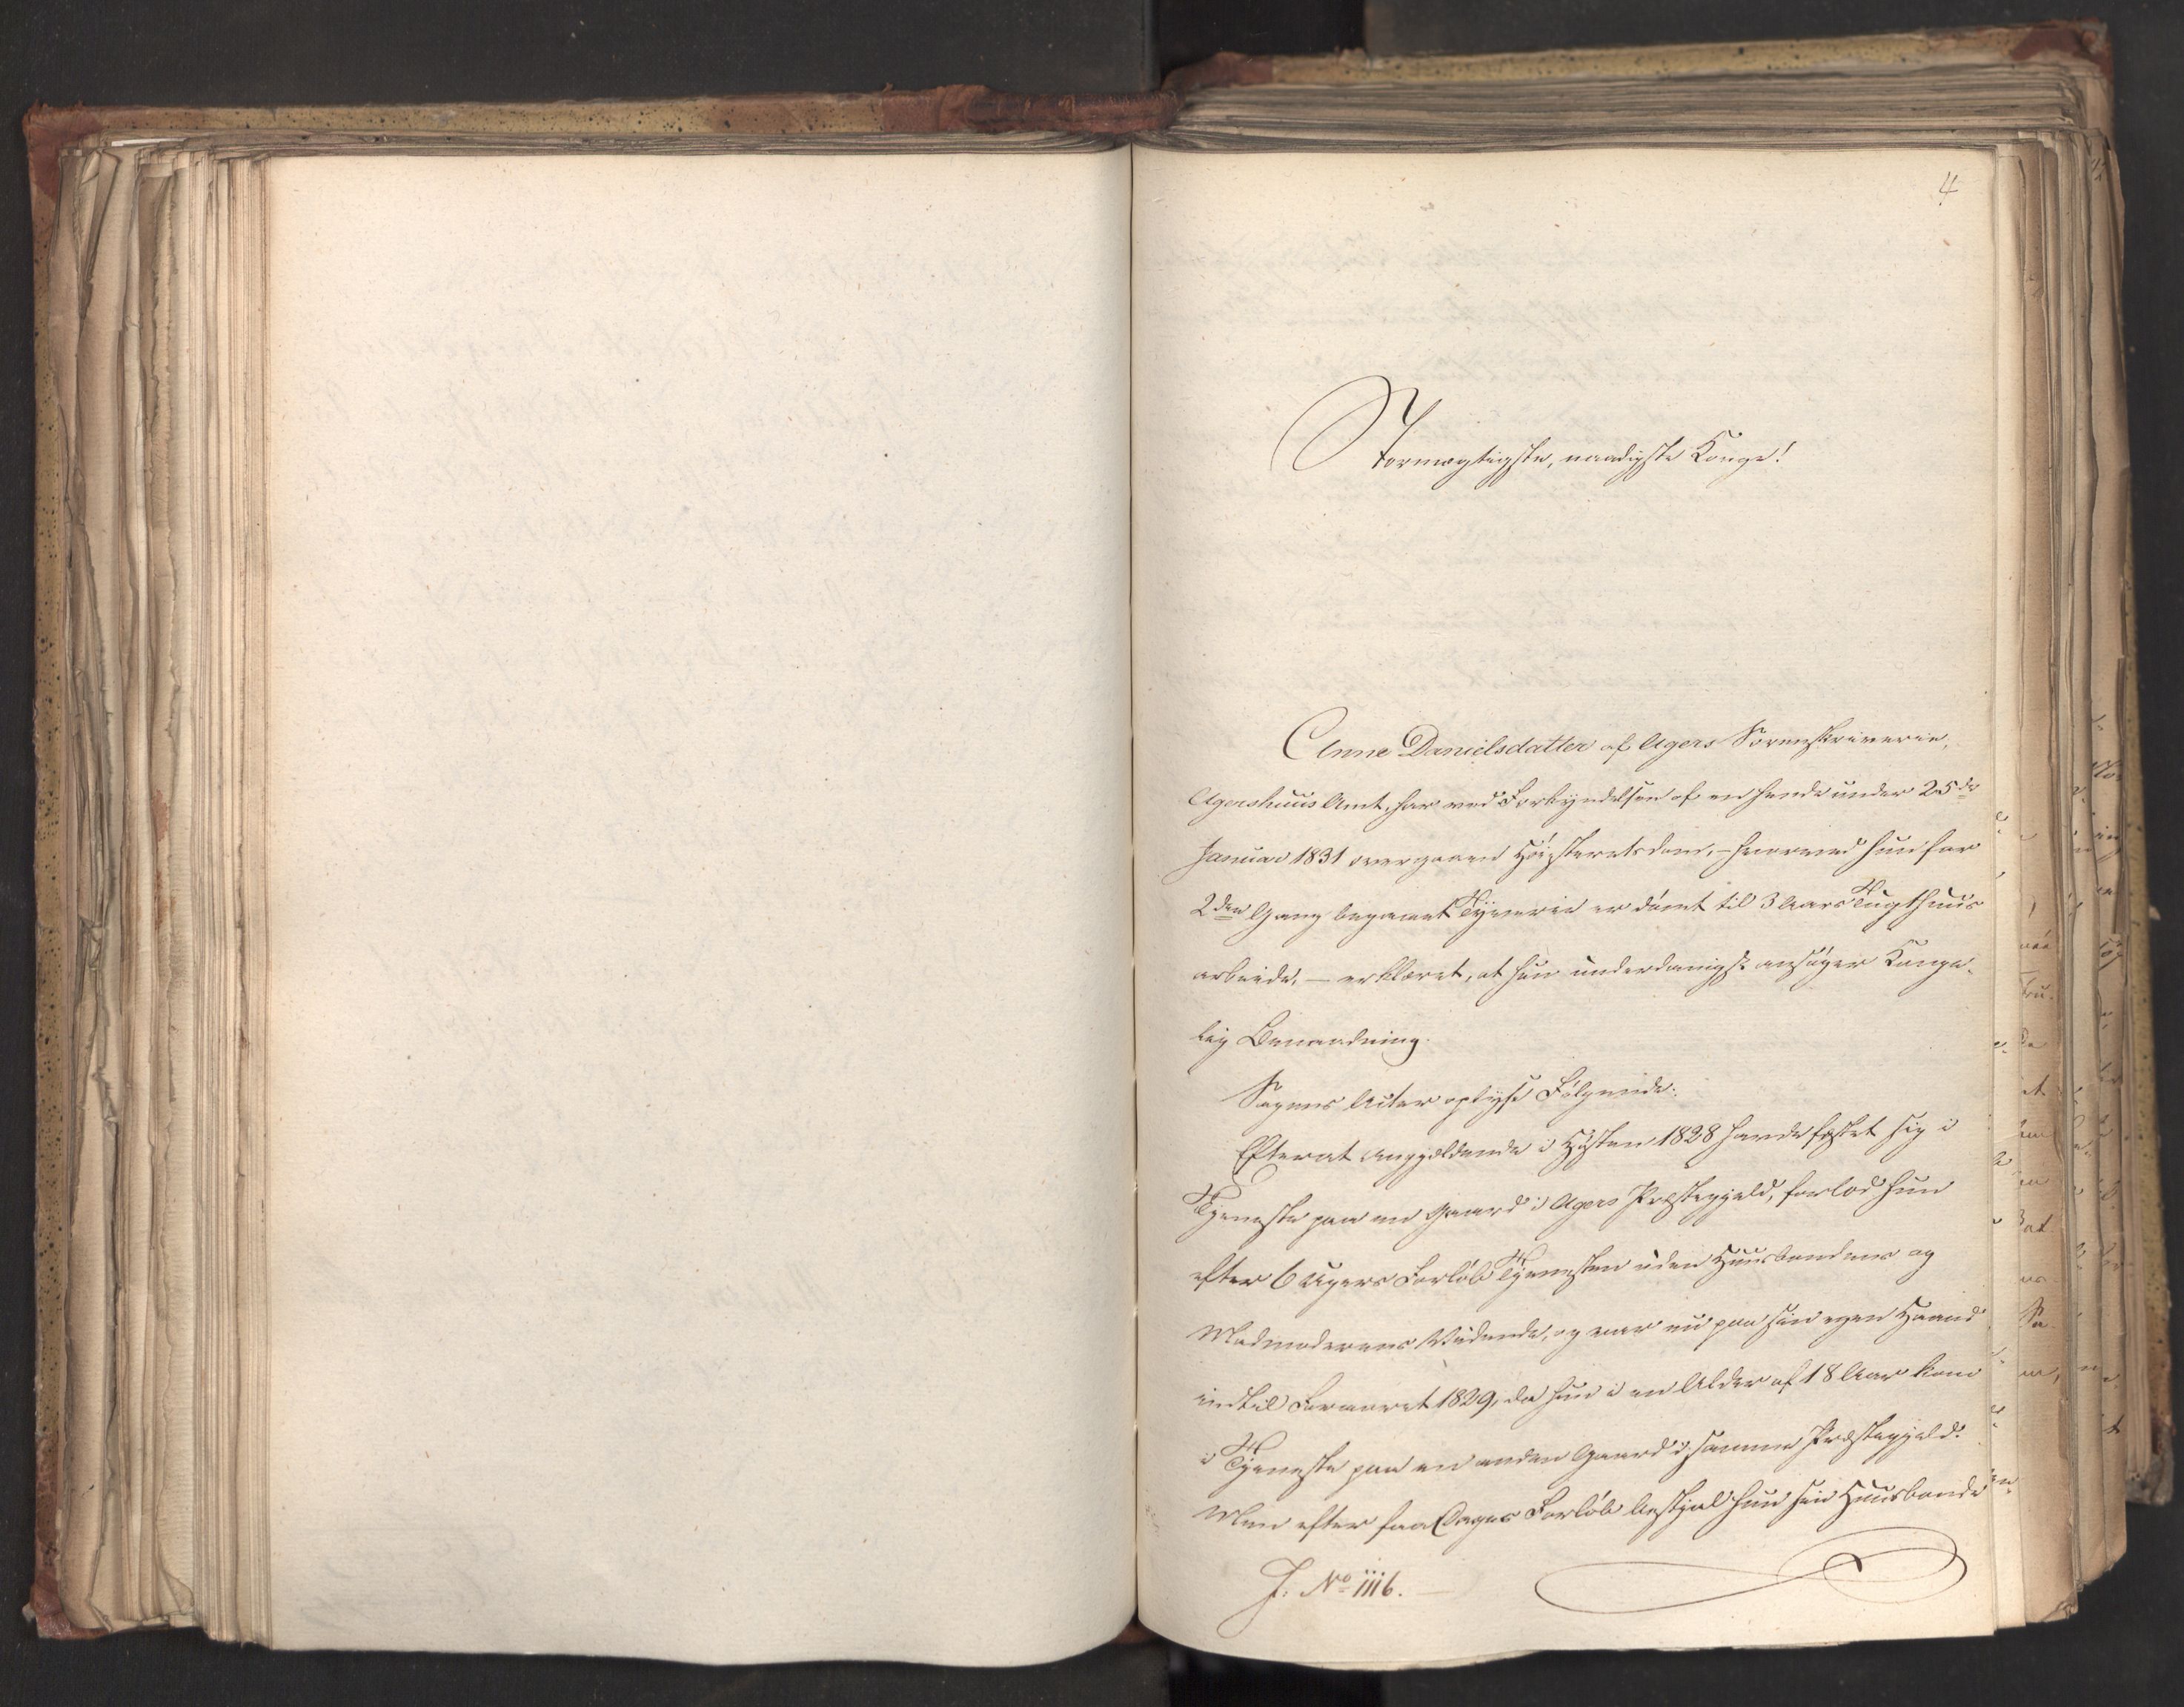 4
Stormægtigste, naadigste Konge!
Anne Danielsdatter af Agers Sorenskriverie,
Agershuus Amt, har ved Forkyndelsen af en hende under 25de
Januar 1831 overgaaen Höiesteretsdom, – hvorved hun for
2den Gang begaaet Tyverie er dömt til 3 Aars Tugthuus
arbeide, – erklæret, at hun underdanigst ansöger Konge-
lig Benaadning.
Sagens Acter oplyse Fölgende:
Efterat Angjældende i Hösten 1828 havde fæstet sig i
Tjeneste paa en Gaard i Agers Præstegjeld, forlod hun
efter 6 Ugers Forlöb Tjenesten uden Huusbondens og
Madmoderens Vidende, og var nu paa sin egen Haand
indtil Foraaret 1829, da hun i en Alder af 18 Aar kom
i Tjeneste paa en anden Gaard i samme Præstegjeld.
Men efter faa Dages Forlöb bestjal hun sin Huusbonde
J. No 1116.